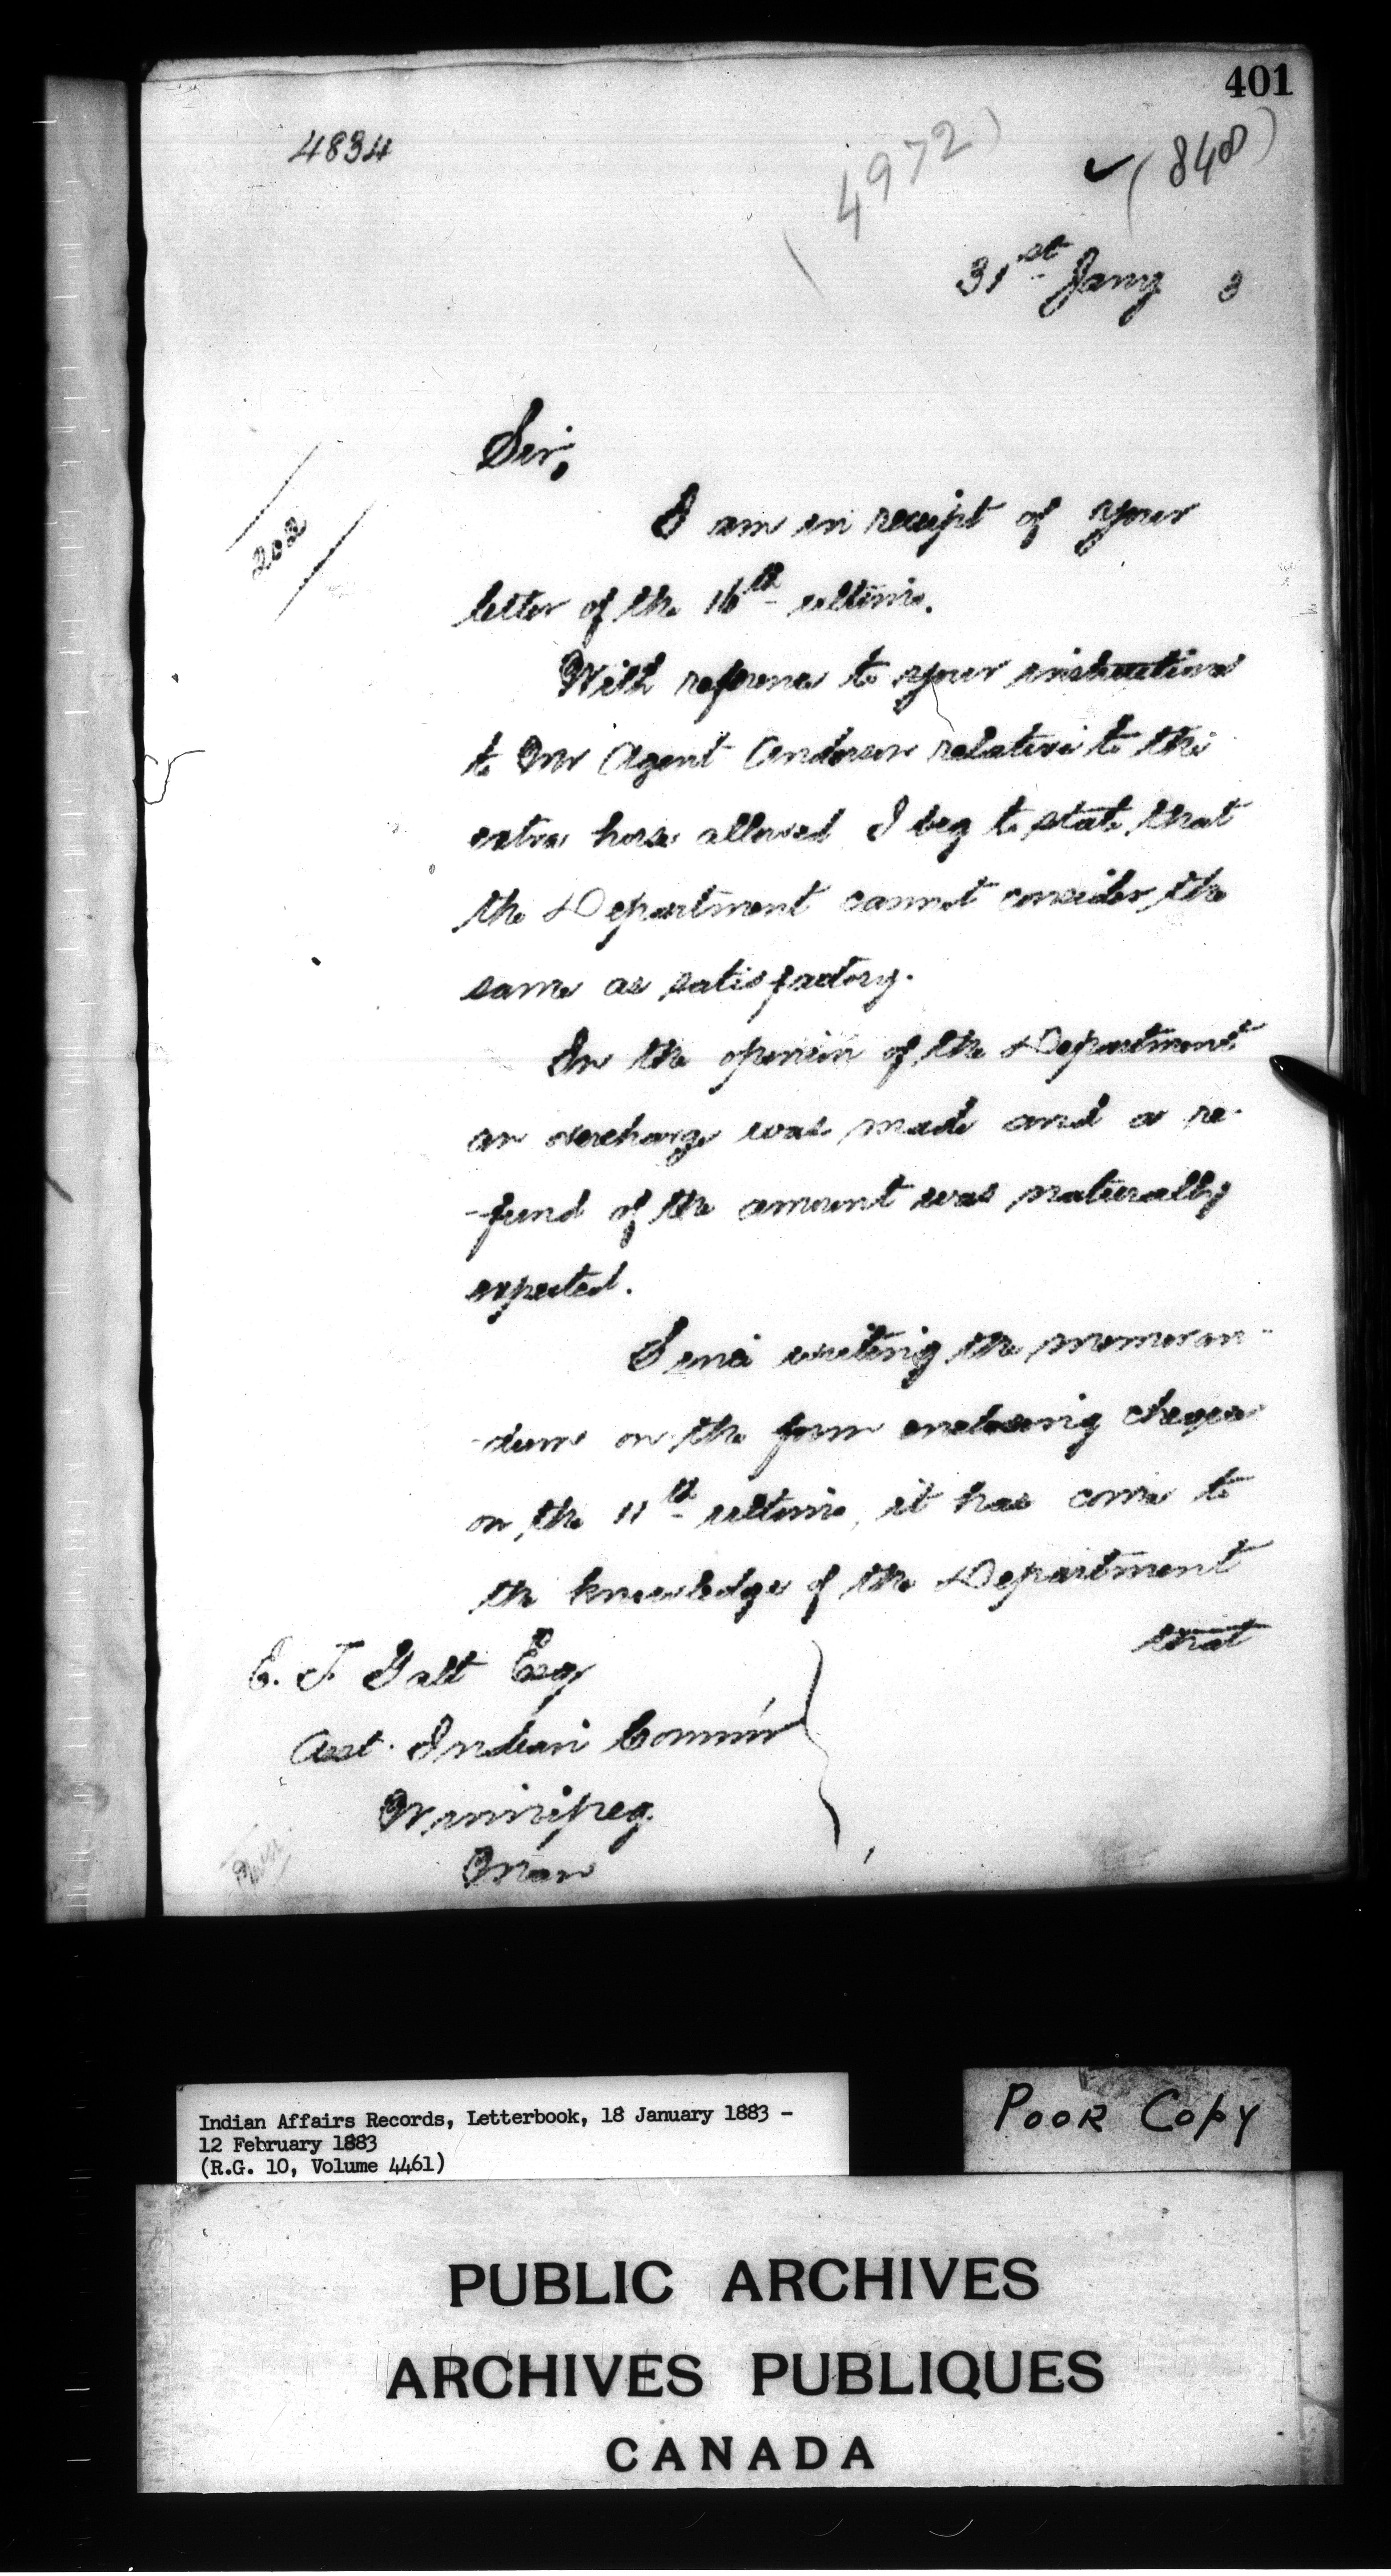 401
4834
(4972)
(848)
31st Jany 3
Sir,
202
I am in receipt of your
letter of the 16th ultimo.
With reference to your instructions
to Mr Agent Anderson relative to the
extra horse allowed I beg to state that
the Department cannot consider the
same as satisfactory.
In the opinion of the Department
an overcharge was made and a re-
-fund of the amount was naturally
expected.
Since writing the memoran-
-dum on the form enclosing cheques
on the 11th ultimo, it has come to
the knowledge of the Department
that
E. T. Galt Esq
Asst. Indian Commr
Winnipeg
Man
Indian Affairs Records, Letterbook, 18 January 1883 -
12 February 1883
(R.G. 10, Volume 4461)
POOR COPY
PUBLIC ARCHIVES
ARCHIVES PUBLIQUES
CANADA